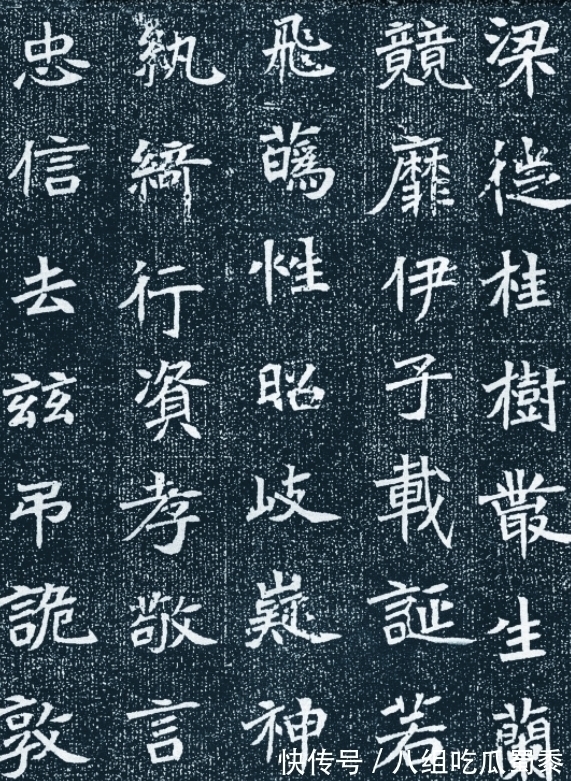 梁徙桂樹叢生蘭
競靡伊子載誕若
飛蘤性昭岐嶷神
執綺行資孝敬言
忠信去玆吊詭敦
快传号 / 八组吃瓜